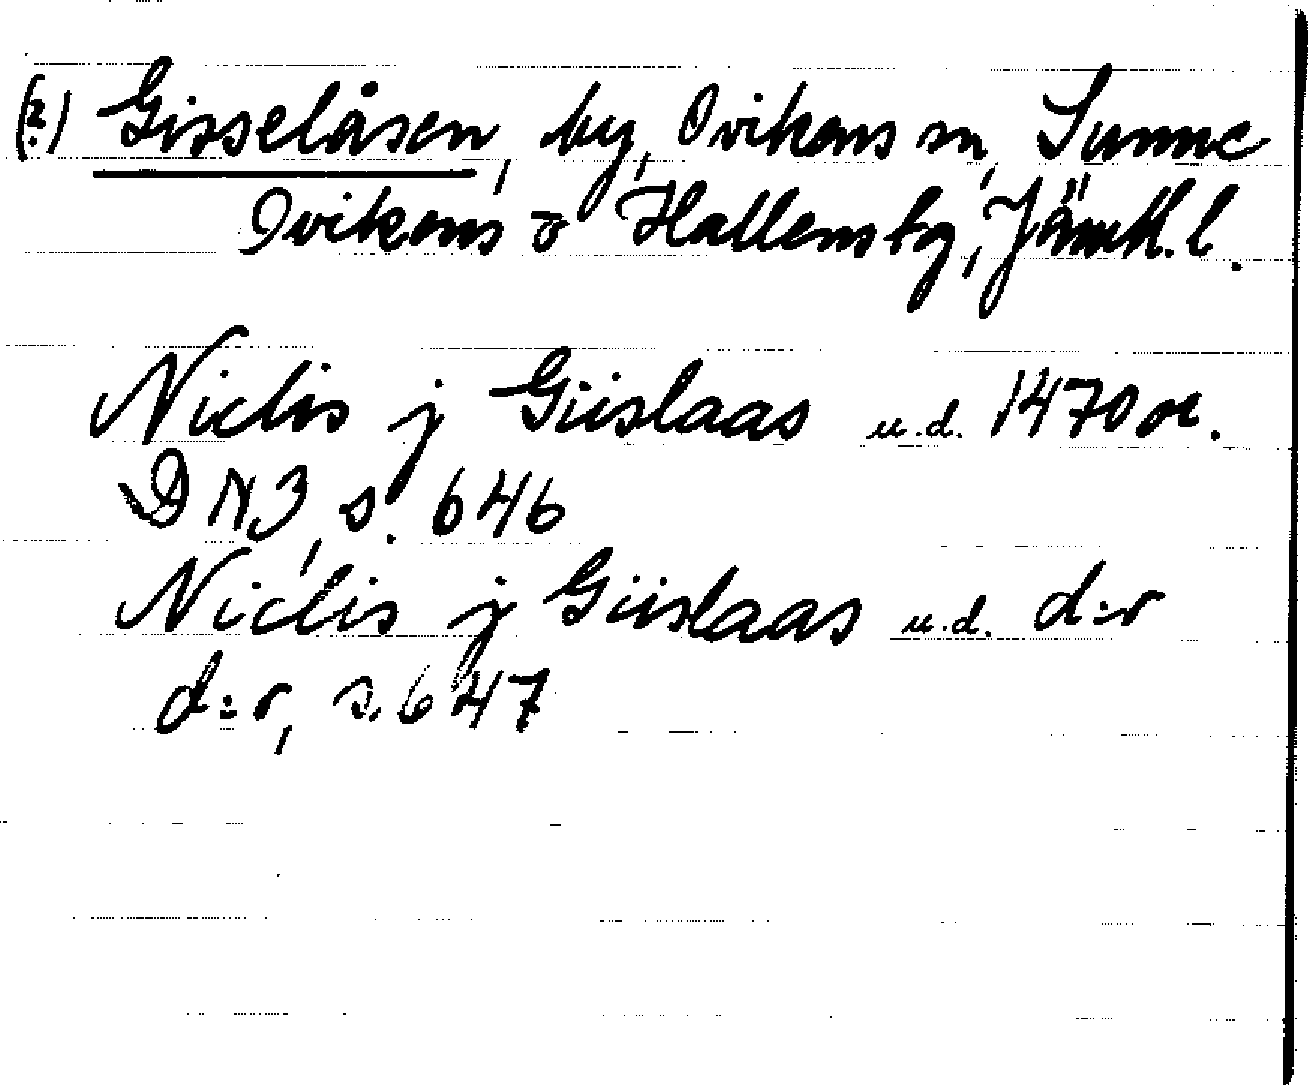 (2.) Gisselåsen, by, Ovikens sn, Sunne
Ovikens o Hallens tg, Jämtl. l.
Niclis j Giislaas u.d. 1470 or.
DN 3, s. 646
Niclis j Giislaas u.d. d:r
d:r, s. 647